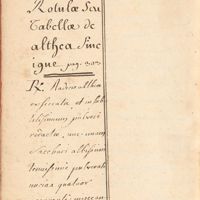 Rotulæ Seu
Tabellæ de
althea Sim
pag. 303
R. Radicis altheæ
exsiccatæ et in sub
tilissimum pulverem
redactæ, unc unam
Sacchari albissimi
tenuissime pulverati
uncias quatuor